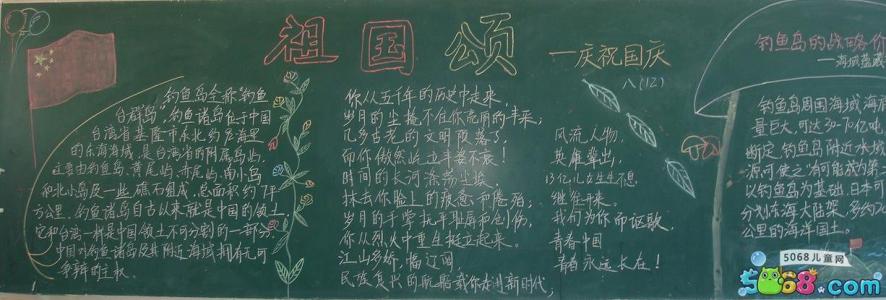 祖国颂
一庆祝国庆
八(12)
钓鱼岛全称"钓鱼
台群岛",钓鱼诸岛位于中国
台湾省基隆市东北约
的东海海域,是台湾省的附属岛屿,
主要由钓鱼岛、黄尾屿、赤尾屿、南小岛
和北小岛及一些礁石组成,总面积约7平
方公里。钓鱼诸岛自古以来就是中国的领土,
它和台湾一样是中国领土不可分割的一部分
中国对钓鱼诸岛及其附近海域拥有无可
争辩的主权
你从五千年的历史中走来,
岁月的尘掩不住你亮丽的丰采;
几多古老的文明陨落了,
而你傲然屹立丰姿不衰!
时间的长河涤荡尘埃,
抹去你脸上的疲惫和倦怠;
岁月的手掌抚平耻辱和创伤,
你从烈火中重生挺立起来。
江山多娇,临江阔
民族复兴的航船载你走进新时代;
风流人物,
英雄辈出,
13亿儿女生生不息,
继往开来。
我们为你而讴歌,
青春中国
青春永远长在!
钓鱼岛的战略价
一海域蕴藏
钓鱼岛周围海域海洋
量巨大,可达30-70亿吨,
断定,钓鱼岛附近水域
源,可使之有可能成为第二
以钓鱼岛为基础,日本可
分划东海大陆架,多约20
公里的海洋国土。
5068儿童网
5068.com